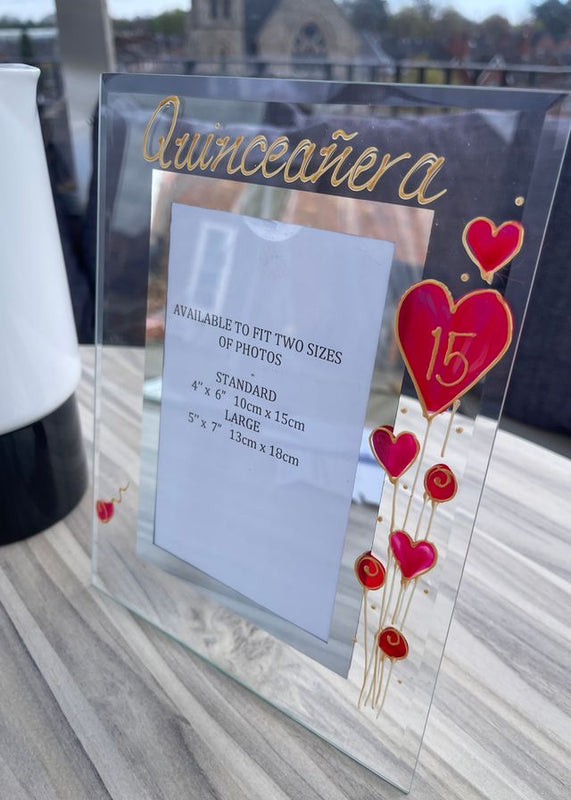 Quinceañera
15
AVAILABLE TO FIT TWO SIZES
OF PHOTOS
-
STANDARD
4" x 6" 10cm x 15cm
LARGE
5" x 7" 13cm x 18cm